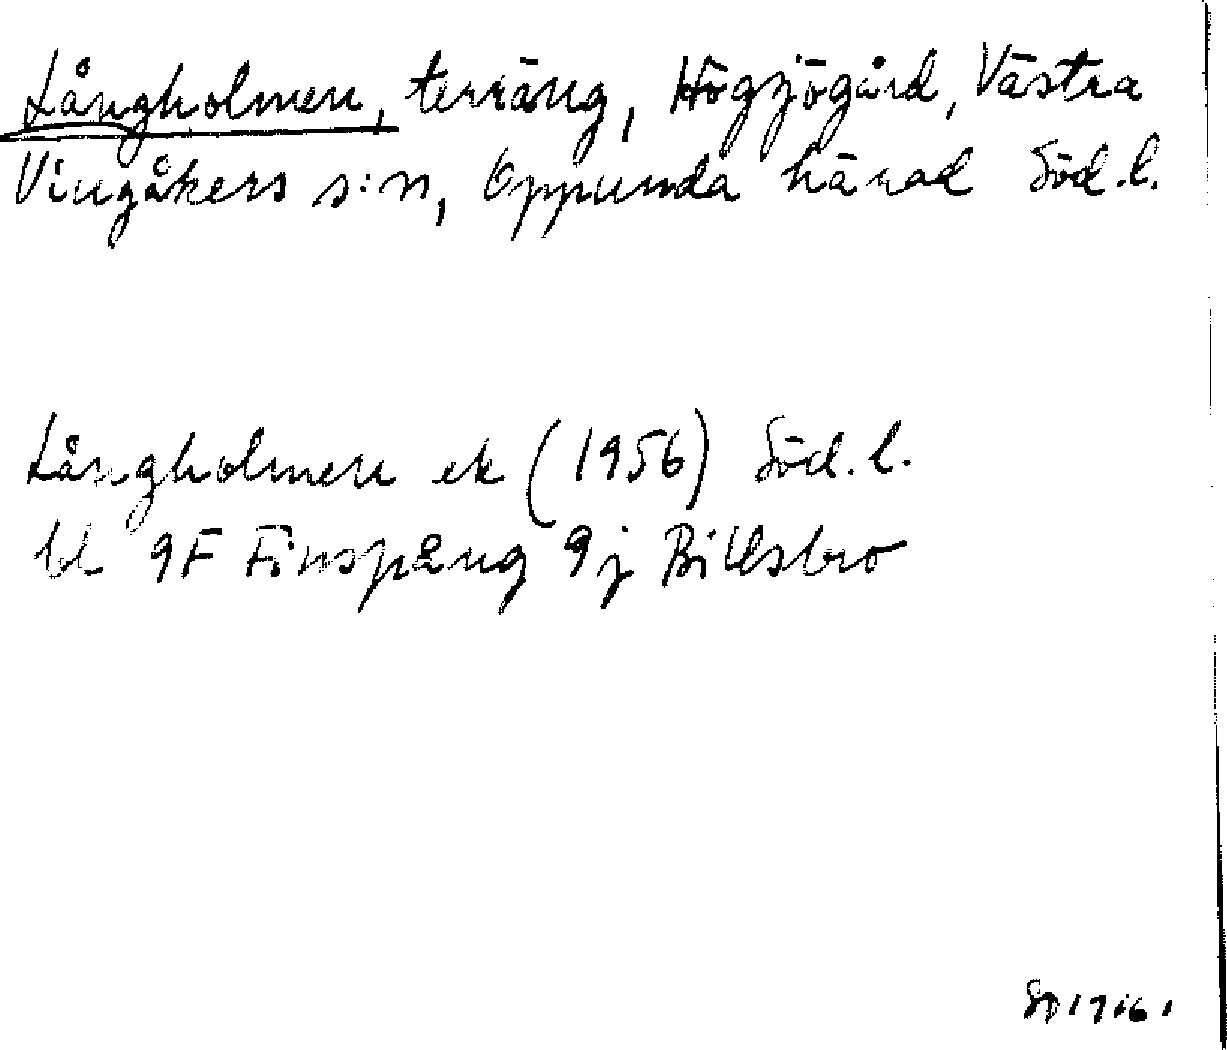 Långholmen, terräng, Högsjögård, Västra
Vingåkers s:n, Oppunda härad Söd.l.
Långholmen ek (1956) Söd.l.
bl 9F Finspång 9j Billsbro